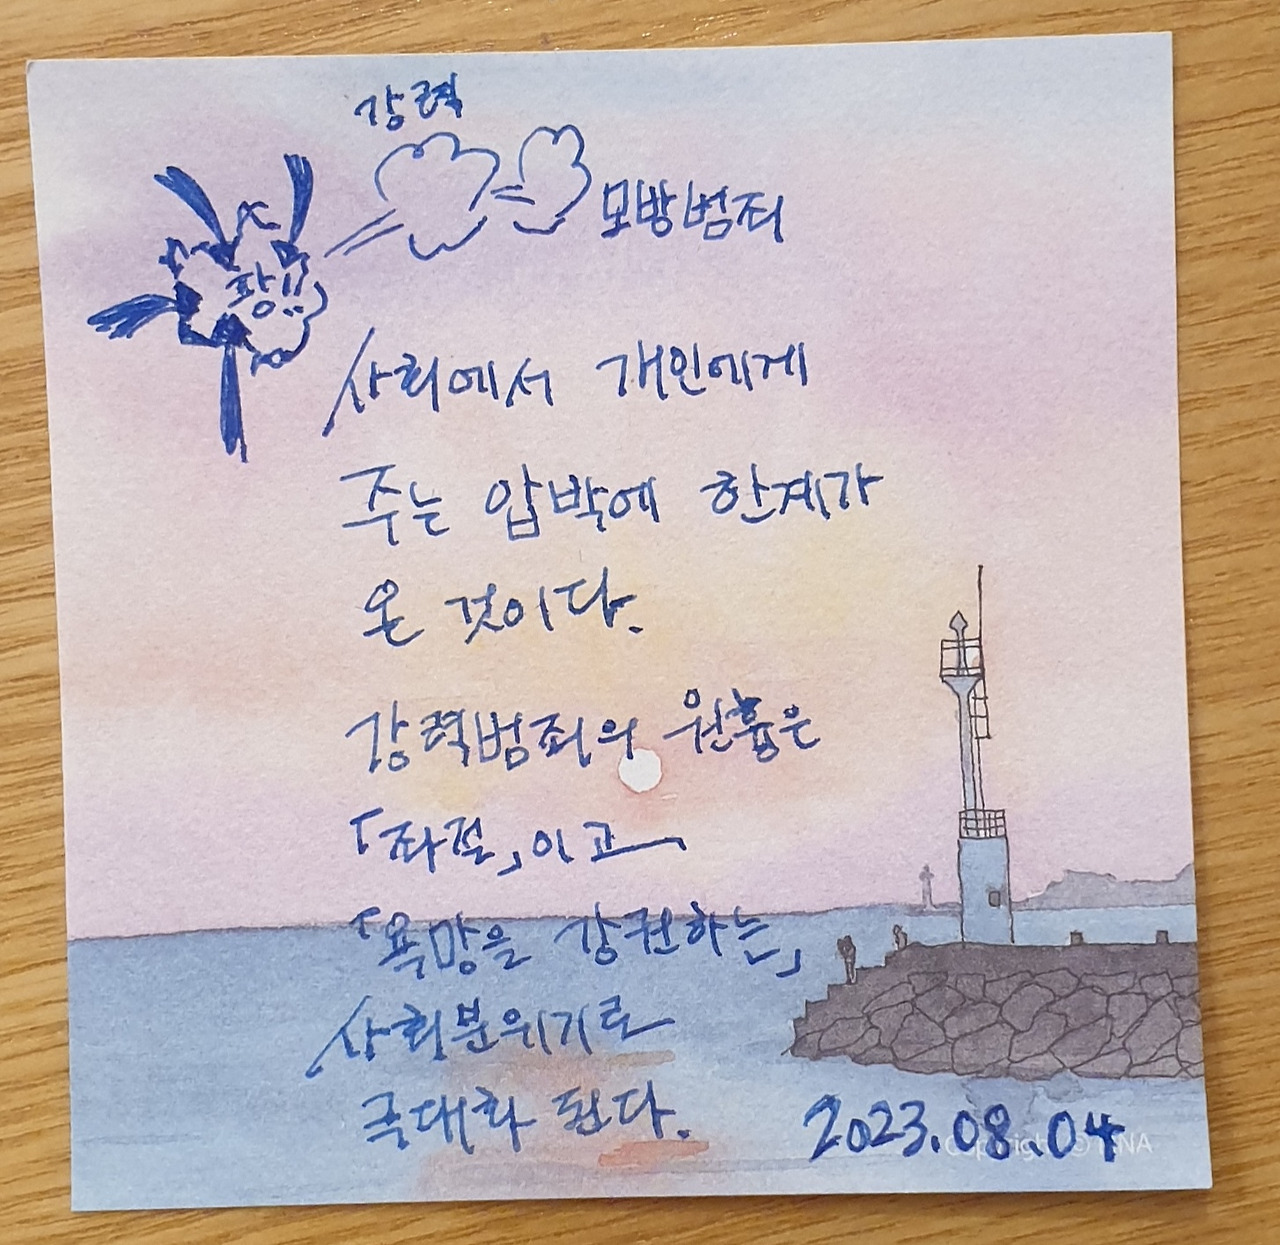 강력
모방범죄
팡!!
사회에서 개인에게
주는 압박에 한계가
온 것이다.
강력범죄의 원흉은
「좌절」이고
「욕망을 강권하는」
사회분위기로
극대화 된다.
2023.08.04
Copyright ©